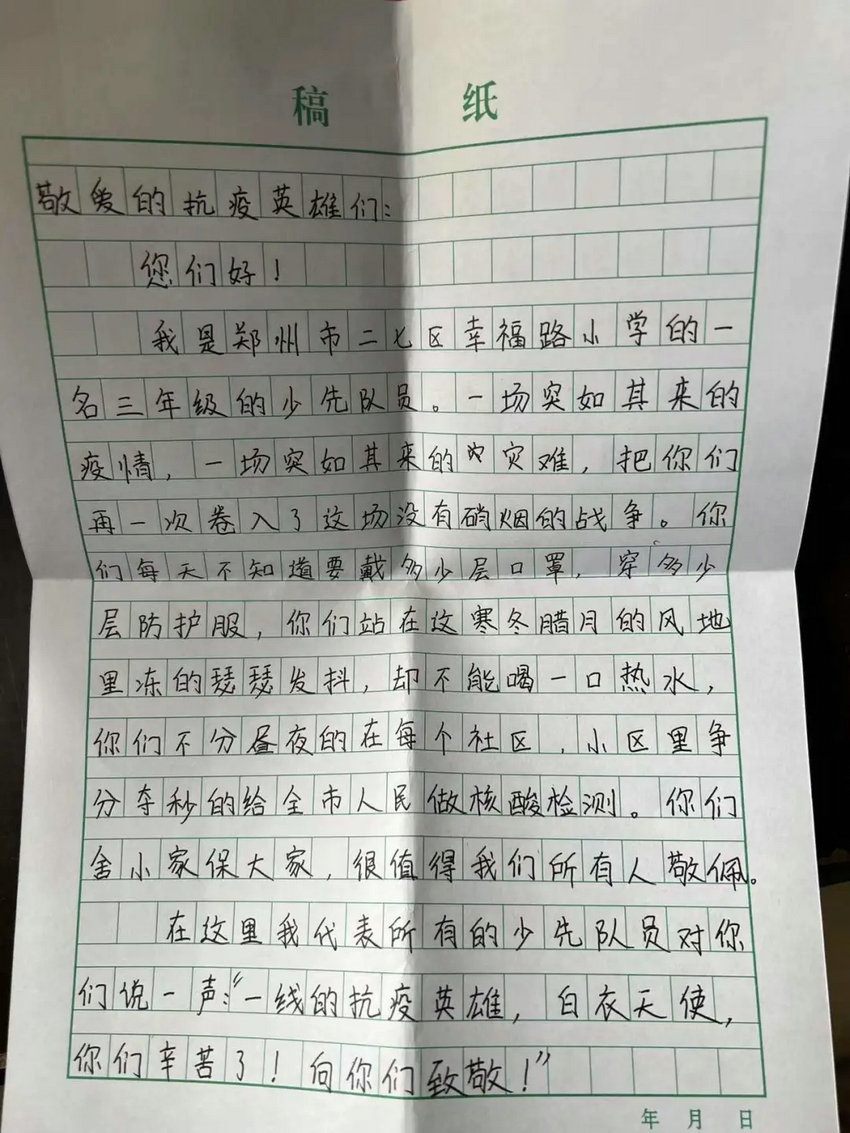 稿 纸
敬爱的抗疫英雄们:
您们好!
我是郑州市二七区幸福路小学的一
名三年级的少先队员。一场突如其来的
疫情,一场突如其来的灾难,把你们
再一次卷入了这场没有硝烟的战争。你
们每天不知道要戴多少层口罩,穿多少
层防护服,你们站在这寒冬腊月的风地
里冻的瑟瑟发抖,却不能喝一口热水,
你们不分昼夜的在每个社区,小区里争
分夺秒的给全市人民做核酸检测。你们
舍小家保大家,很值得我们所有人敬佩。
在这里我代表所有的少先队员对你
们说一声:“一线的抗疫英雄,白衣天使,
你们辛苦了!向你们致敬!”
年 月 日